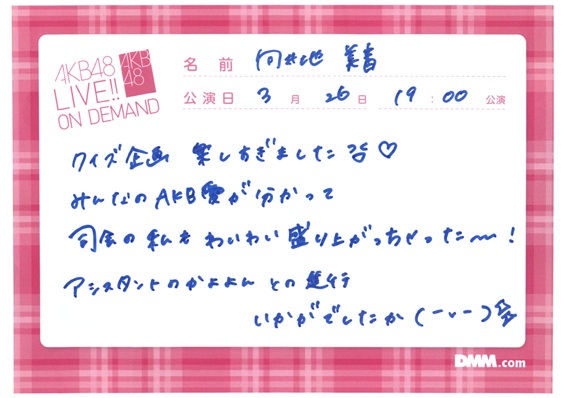 AKB48
LIVE!!
ON DEMAND
AKB
48
名前 向井地 美音
公演日 3月26日 19:00公演
クイズ企画 楽しすぎました♡
みんなのAKB愛が分かって
司会の私もわいわい盛り上がっちゃった〜!
アシスタントのかよよんとの進行
いかがでしたか(ーvー)
DMM.com